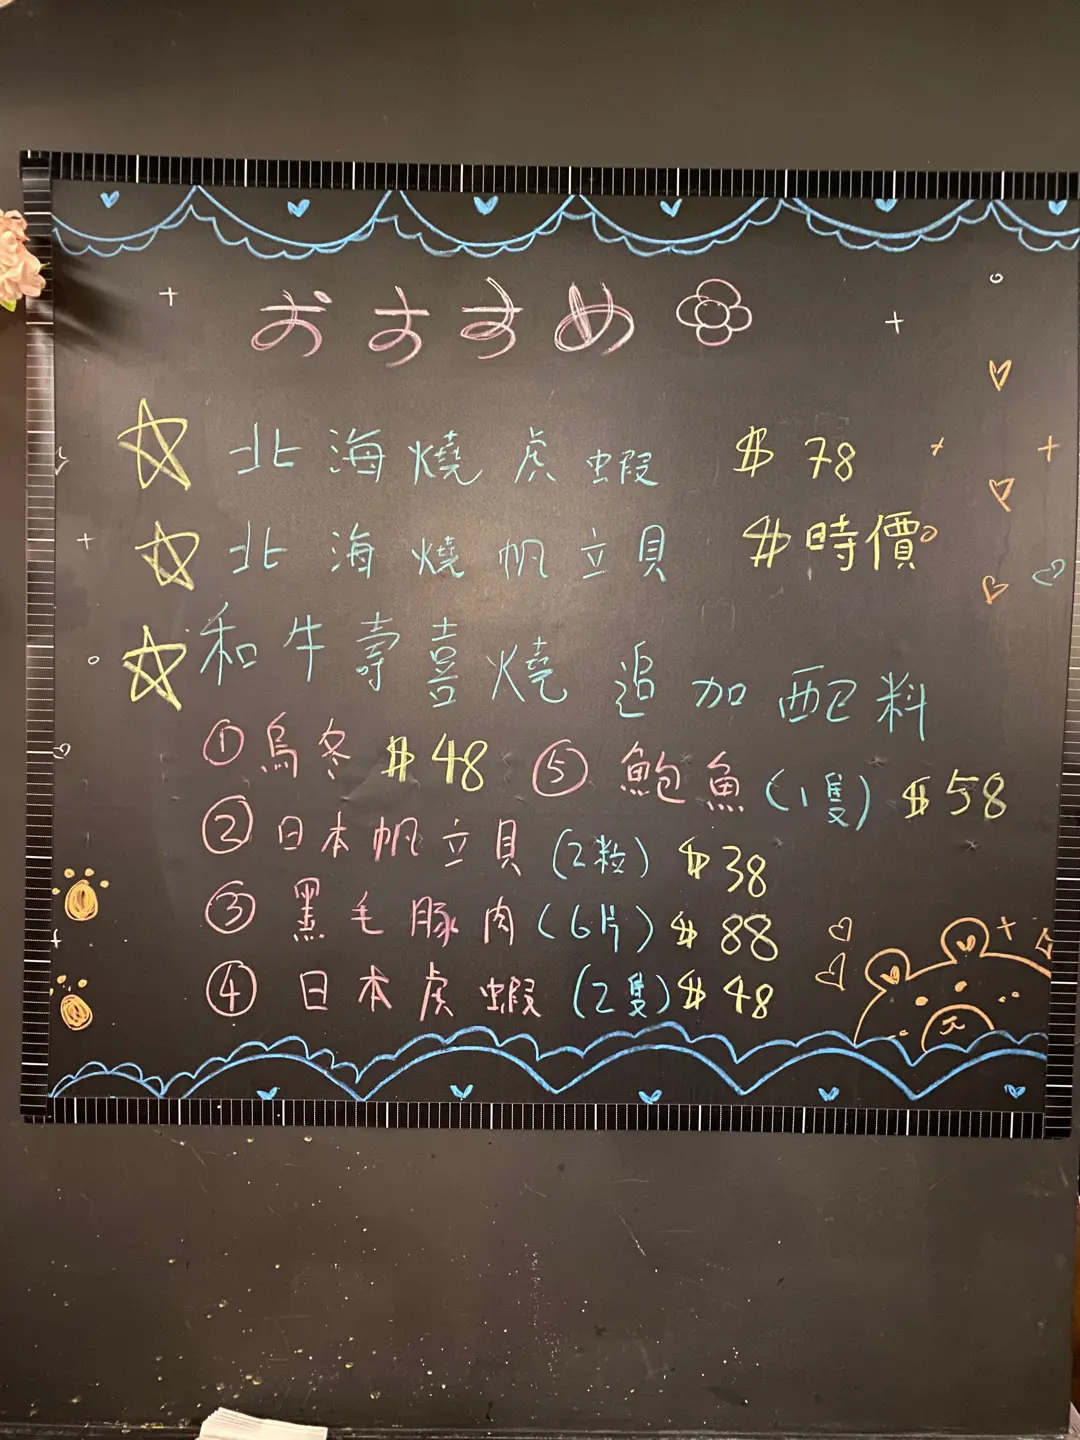 おすすめ
北海燒虎蝦 $78
北海燒帆立貝 $時價
和牛壽喜燒追加配料
①烏冬 $48 ⑤鮑魚(1隻) $58
②日本帆立貝(2粒) $38
③黑毛豚肉(6片) $88
④日本虎蝦(2隻) $48